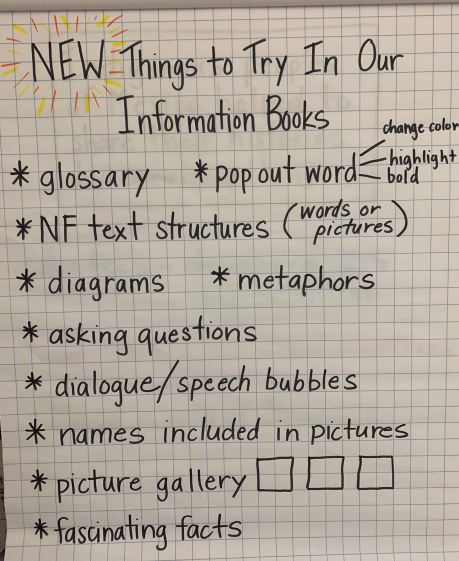 NEW Things to Try In Our
Information Books
* glossary * pop out word change color
highlight
bold
* NF text structures (words or pictures)
* diagrams * metaphors
* asking questions
* dialogue/speech bubbles
* names included in pictures
* picture gallery
* fascinating facts